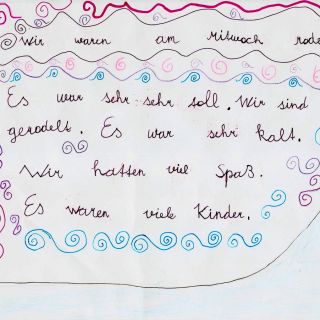 Wir waren am Mittwoch rode
Es war sehr sehr toll. Wir sind
gerodelt. Es war sehr kalt.
Wir hatten viel Spaß.
Es waren viele Kinder.